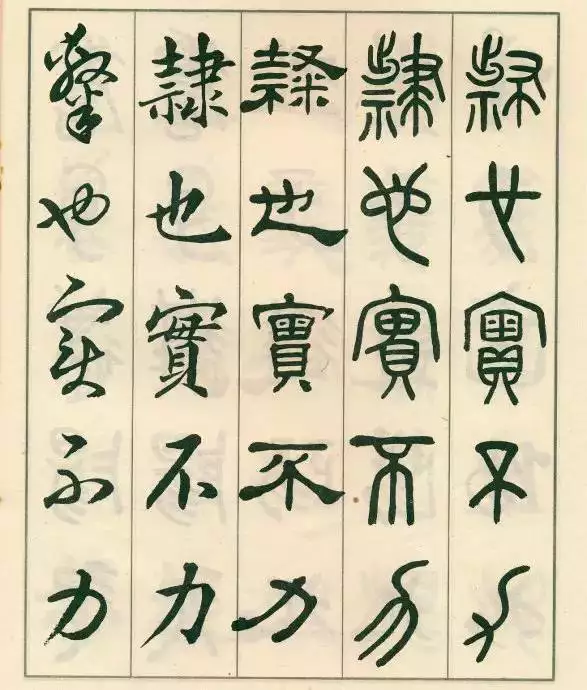 隸也實不力
隸也實不力
隸也實不力
隸也實不力
隸也實不力